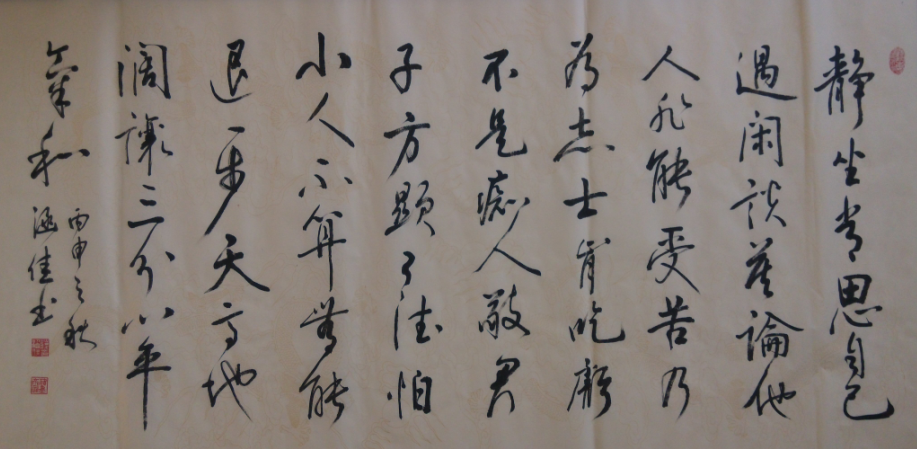 静坐常思自己
過闲談莫論他
人非能受苦乃
为志士肯吃虧
不是痴人敬君
子方顯有德怕
小人不算無能
退一步天高地
闊讓三分心平
氣和
丙申之秋
涵佳书